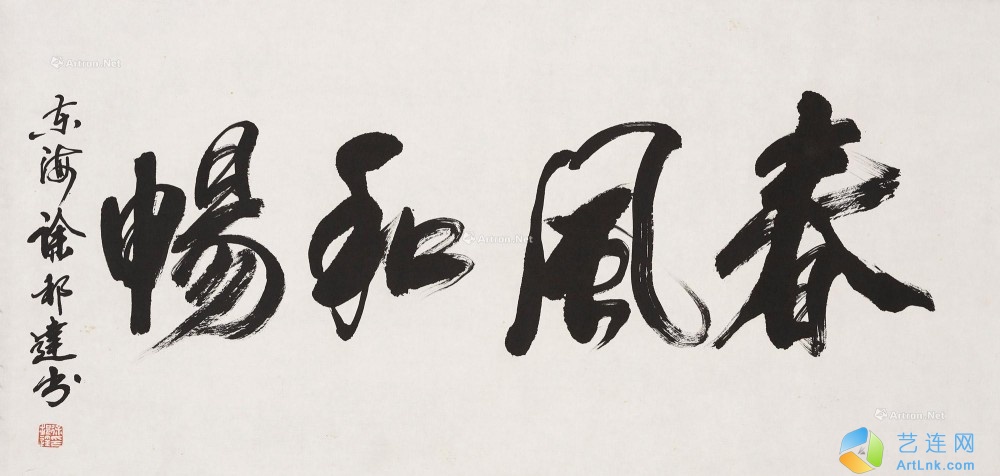 春風和暢
东海徐邦達书
Artron.Net
Artron.Net
Artron.Net
Artron.Net
艺连网
ArtLnk.com